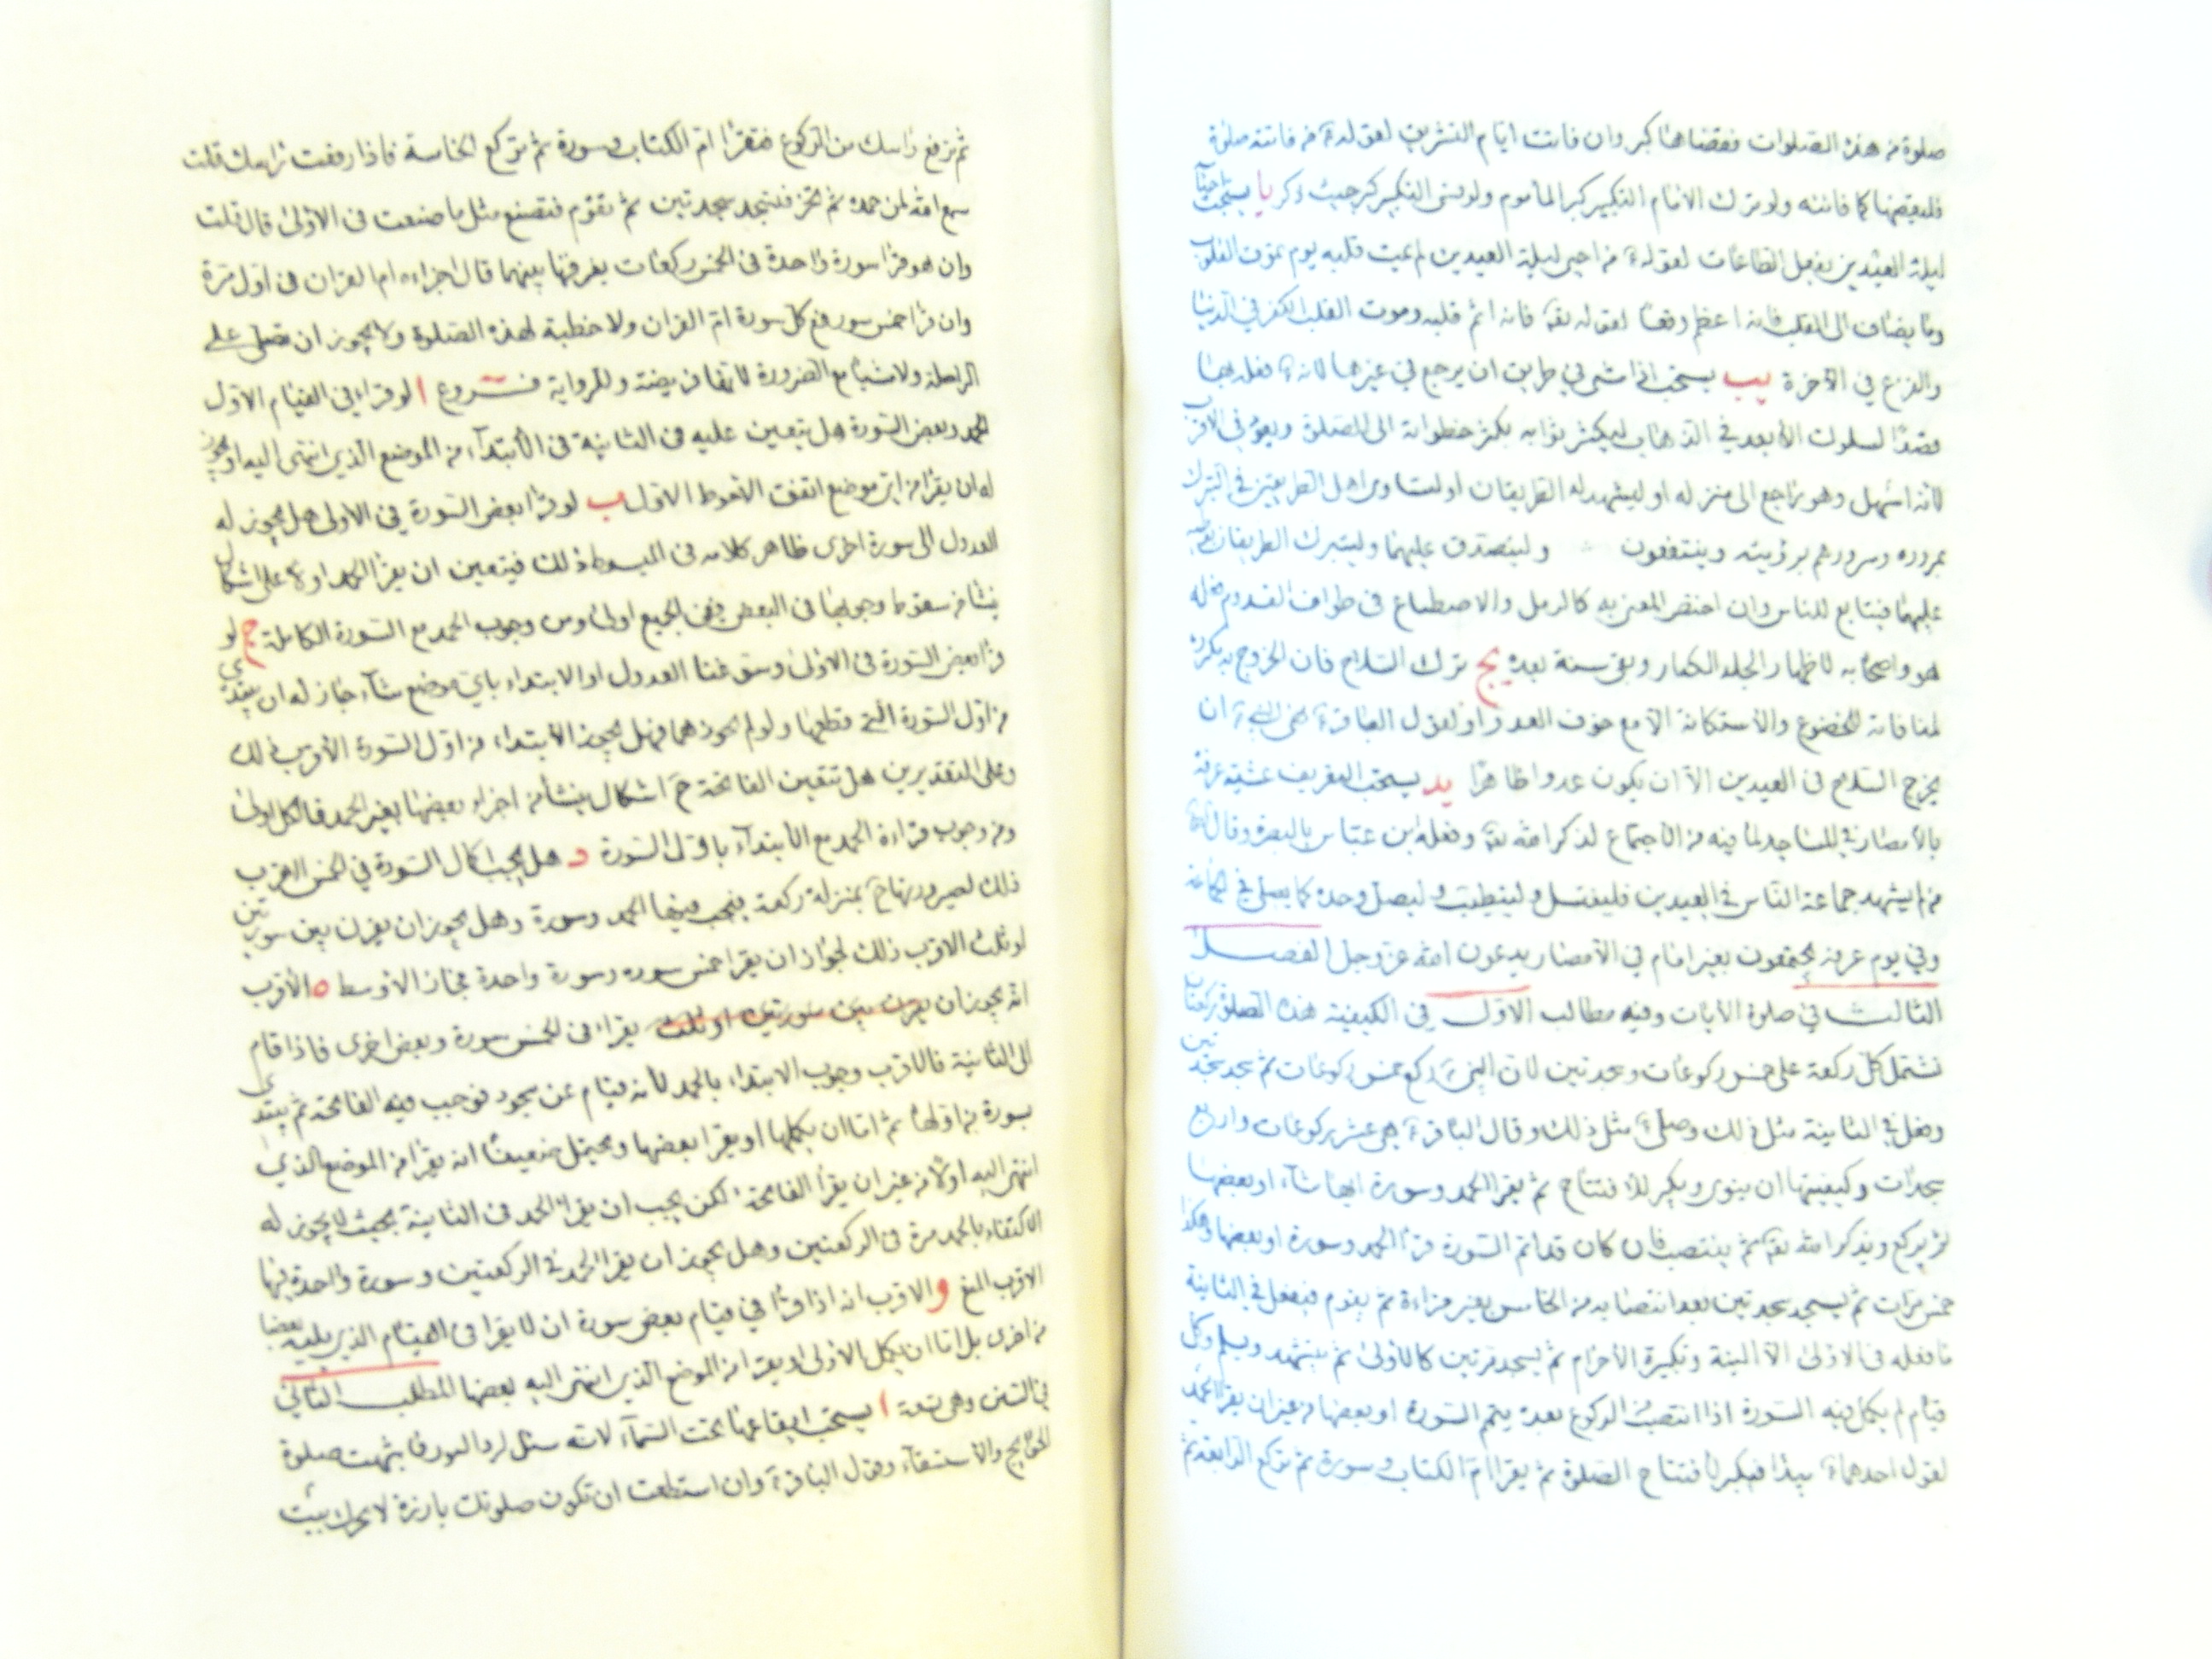 صلوة من هذه الصلوات فقضاها كبر وان فاتت ايام التشريق لقوله ع من فاتته صلوة
فليقضها كما فاتته ولو ترك الامام التكبير كبر المأموم ولو نسى التكبير كبر حيث ذكر يا يستحب احيآء
ليلة العيدين بفعل الطاعات لقوله ع من احيى ليلة العيدين لم يمت قلبه يوم تموت القلوب
وما يضاف الى القلب فانه اعظم وقعا لقوله تعالى فانه اثم قلبه وموت القلب الكفر في الدنيا
والفزع في الآخرة يب يستحب اذا مشى في طريق ان يرجع في غيرها لانه ع فعله
قصدا لسلوك الأبعد في الذهاب ليكثر ثوابه بكثرة خطواته الى الصلوة ويعود في الاقرب
لانه اسهل وهو راجع الى منزله او ليشهد له الطريقان او ليساوى اهل الطريقين في التبرك
بمروره وسرورهم برؤيته وينتفعون وليتصدق عليهما وليتبرك الطريقان
عليهما فيتابع للناس وان اختص المعنى به كالرمل والاضطباع في طواف القدوم فعله
هو واصحابه لاظهار الجلد للكفار وبقى سنة بعده يج ترك السلاح فان الخروج به مكروه
لمنافاته للخضوع والاستكانة الا مع خوف العدو ولقول الباقر ع نهى النبى ع ان
يخرج السلاح في العيدين الا ان يكون عدوا ظاهرا يد يستحب التعريف عشية عرفة
بالأمصار في المساجد لما فيه من الاجتماع لذكر الله تعالى وفعله ابن عباس بالبصرة وقال
من لم يشهد جماعة الناس في العيدين فليغتسل وليتطيب وليصل وحده كما يصلى في الجماعة
وفي يوم عرفة يجتمعون بغير امام في الأمصار يدعون الله عز وجل الفصل
الثالث في صلوة الايات وفيه مطالب الاول في الكيفية هذه الصلوة ركعتان
تشتمل كل ركعة على خمس ركوعات وسجدتين لان النبى ع ركع خمس ركوعات ثم سجد سجدتين
وفعل في الثانية مثل ذلك وصلى ع مثل ذلك وقال الباقر ع هى عشر ركوعات واربع
سجدات وكيفيتها ان ينوى ويكبر للافتتاح ثم يقرأ الحمد وسورة ايها شآء او بعضها
ثم يركع ويذكر الله تعالى ثم ينتصب فان كان قد اتم السورة قرأ الحمد وسورة او بعضها وهكذا
خمس مرات ثم يسجد سجدتين بعد انتصابه من الخامس بغير قراءة ثم يقوم فيفعل في الثانية
ما فعله في الاولى الا النية وتكبيرة الاحرام ثم يسجد مرتين كالاولى ثم يتشهد ويسلم وكل
قيام لم يكمل فيه السورة اذا انتصب من الركوع بعده يتمم السورة او بعضها من غير ان يقرأ الحمد
لقول احدهما ع يبدأ فيكبر لافتتاح الصلوة ثم يقرأ ام الكتاب وسورة ثم تركع الرابعة ثم
ثم ترفع رأسك من الركوع فتقرأ ام الكتاب وسورة ثم تركع الخامسة فاذا رفعت رأسك قلت
سمع الله لمن حمده ثم تخر فتسجد سجدتين ثم تقوم فتصنع مثل ما صنعت في الأولى قال قلت
وان هو قرأ سورة واحدة في الخمس ركعات يفرقها بينهما قال اجزاءه ام القران في اول مرة
وان قرأ خمس سور فمع كل سورة ام القران ولا خطبة لهذه الصلوة ولا يجوز ان تصلى على
الراحلة ولا مشيا مع الضرورة لانها فريضة وللرواية فـــروع ا لو قراء في القيام الاول
الحمد وبعض السورة هل يتعين عليه في الثانية في الأبتدآء من الموضع الذي انتهى اليه او يجوز
له ان يقرأ من اى موضع اتفق الاحوط الاول ب لو قرأ بعض السورة في الاولى هل يجوز له
العدول الى سورة اخرى ظاهر كلامه في المبسوط ذلك فيتعين ان يقرأ الحمد اولا على اشكال
ينشأ من سقوط وجوبها في البعض ففى الجميع اولى ومن وجوب الحمد مع السورة الكاملة ج لو
قرأ بعض السورة في الاولى وسوغنا العدول او الابتداء باى موضع شآء جاز له ان يبتدى
من اول السورة التي قطعها ولو لم نجوزهما فهل يجوز الأبتداء من اول السورة الأقرب ذلك
وعلى التقديرين هل تتعين الفاتحة ح اشكال ينشأ من اجزاء بعضها بغير الحمد فالكل اولى
ومن وجوب قراءة الحمد مع الأبتدآء باول السورة د هل يجب اكمال السورة في الخمس الاقرب
ذلك لصيرورتها ح بمنزلة ركعة فيجب فيها الحمد وسورة وهل يجوز ان يقرن بين سورتين
او ثلث الاقرب ذلك لجواز ان يقرا خمس سور وسورة واحدة فجاز الاوسط ه الأقرب
انه يجوز ان يقرن بين سورتين او ثلث يقراء في الخمس سورة وبعض اخرى فاذا قام
الى الثانية فالاقرب وجوب الابتداء بالحمد لأنه قيام عن سجود فوجب فيه الفاتحة ثم يبتدى
بسورة من اولها ثم اما ان يكملها او يقرا بعضها ويحتمل ضعيفا انه يقرأ من الموضع الذي
انتهى اليه اولا من غير ان يقرأ الفاتحة لكن يجب ان يقرأ الحمد في الثانية بحيث لا يجوز له
الاكتفاء بالحمد مرة في الركعتين وهل يجوز ان يقرا الحمد في الركعتين وسورة واحدة فيها
الاقرب المنع و الاقرب انه اذا قرأ في قيام بعض سورة ان لا يقرا في القيام الذي يليه بعضا
من اخرى بل اما ان يكمل الاولى او يقرأ من الموضع الذي انتهى اليه بعضها المطلب الثاني
في السنن وهى تسعة ا يستحب ايقاعها تحت السمآء لانه سئل لرد النور فاشبهت صلوة
الحوايج والأستسقآء وقول الباقر ع وان استطعت ان تكون صلوتك بارزة لا يجزك بيت